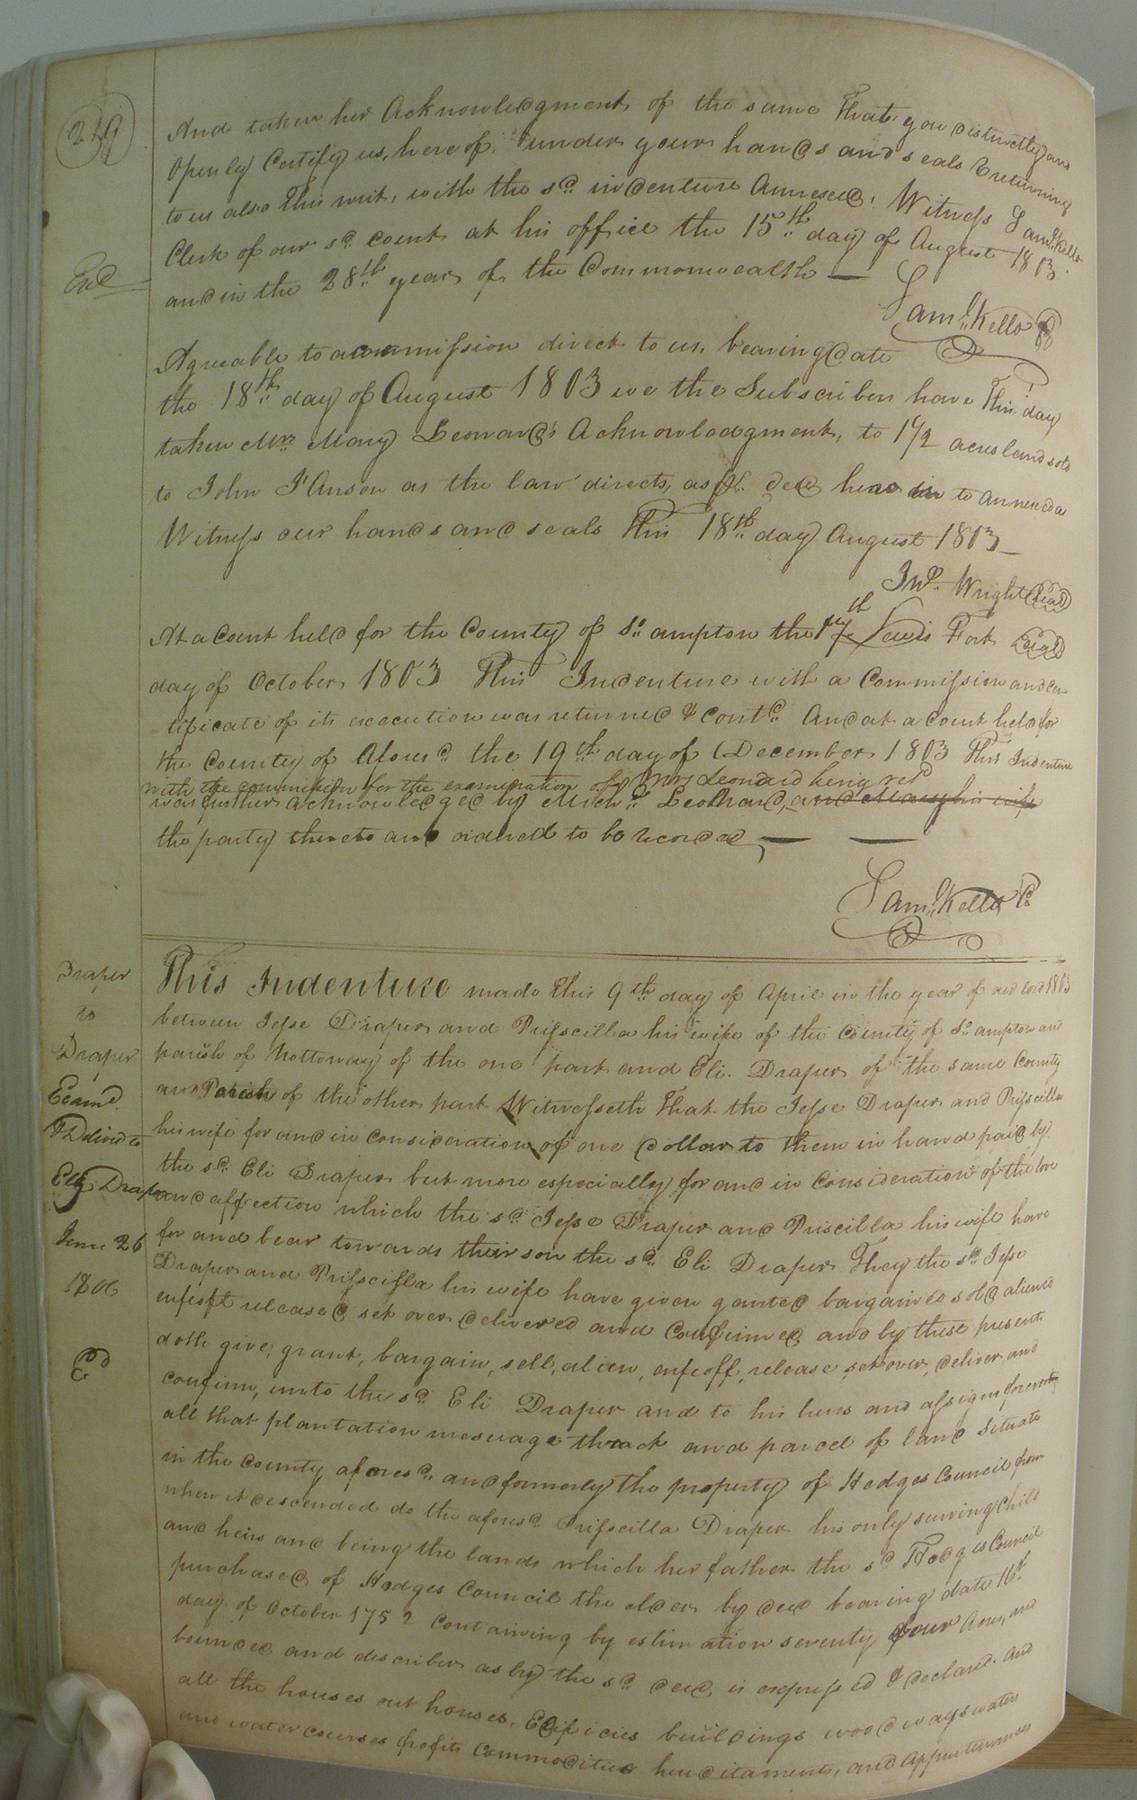 249
And taken her Acknowledgment of the same That you distinctly and
Openly Certify us, here of, under your hands and seals returning
to us also This writ, with the sd. indenture Annexed. Witness Saml. Kello
Clerk of our sd. court at his office the 15th day of August 1803
Exd
and in the 28th year of the Commonwealth —
Saml. Kello
Agreable to a commission direct to us, bearing date
the 18th day of August 1803 we the Subscribers have This day
taken Mrs Mary Leonard's Acknowledgment, to 1 1/2 acres land sold
to John I'Anson as the law directs, as deed to annexed
Witness our hands and seals This 18th day August 1803 —
Jno. Wright (seal)
Lewis Fort (seal)
At a Court held for the County of So.ampton the 17th
day of October 1803 This Indenture with a Commission and cer
tificate of its execution was returned & contd. And at a Court held for
the County of Aforesd. the 19th day of December 1803 This Indenture
with the commission for the examination of Mrs Leonard being retd
was further acknowledged by Leonard, and Mary his wife
the party thereto and ordered to be recorded, —
Saml. Kello C
Draper
to
Draper
Examd.
& Delivd to
Ely Draper
June 26
1806
Ed
This Indenture made This 9th day of April in the year of our Lord 1803
between Jesse Draper and Prisscilla his wife of the County of So.ampton and
parish of Nottoway of the one part and Eli. Draper of the same County
and Parish of the other part Witnesseth That the Jesse Draper and Prisscilla
his wife for and in consideration of one dollar to them in hand paid by
the sd. Eli Draper but more especially for and in consideration of the love
and affection which the sd. Jesse Draper and Priscilla his wife have
for and bear towards their son the sd. Eli Draper They the sd. Jesse
Draper and Prisscilla his wife have given ganted bargained sold aliened
enfeofft released set over delivered and confirmed and by these present
doth give, grant, bargain, sell, alien, enfeoff, release set over, deliver and
confirm, unto the sd. Eli Draper and to his heirs and assigns forever
all that plantation messuage thrack and parcel of land Situate
in the County aforesd. and formerly the property of Hodges Council from
when it descended do the aforesd. Prisscilla Draper his only surving Child
and heirs and being the lands which her father the sd Hodges Council
purchased of Hodges Council the elder by deed bearing date 16th
day of October 1752 containing by estimation seventy four Acres, and
bounded and described as by the sd deed is expressed & declared. And
all the houses out houses, Edificies buildings wood ways waters
and water courses profits commodities hereditaments, and Appurtenances